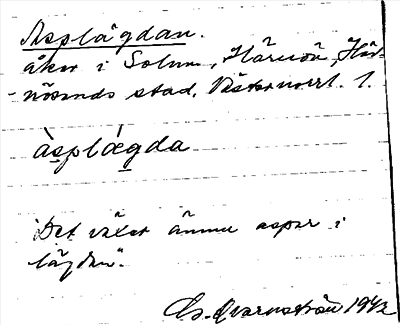 Asplägdan.
åker i Solum, Härnön, Här-
nösands stad, Västernorrl. l.
àsplǽgda
"Det växer ännu aspar i
lägdan".
Qvarnström 1942